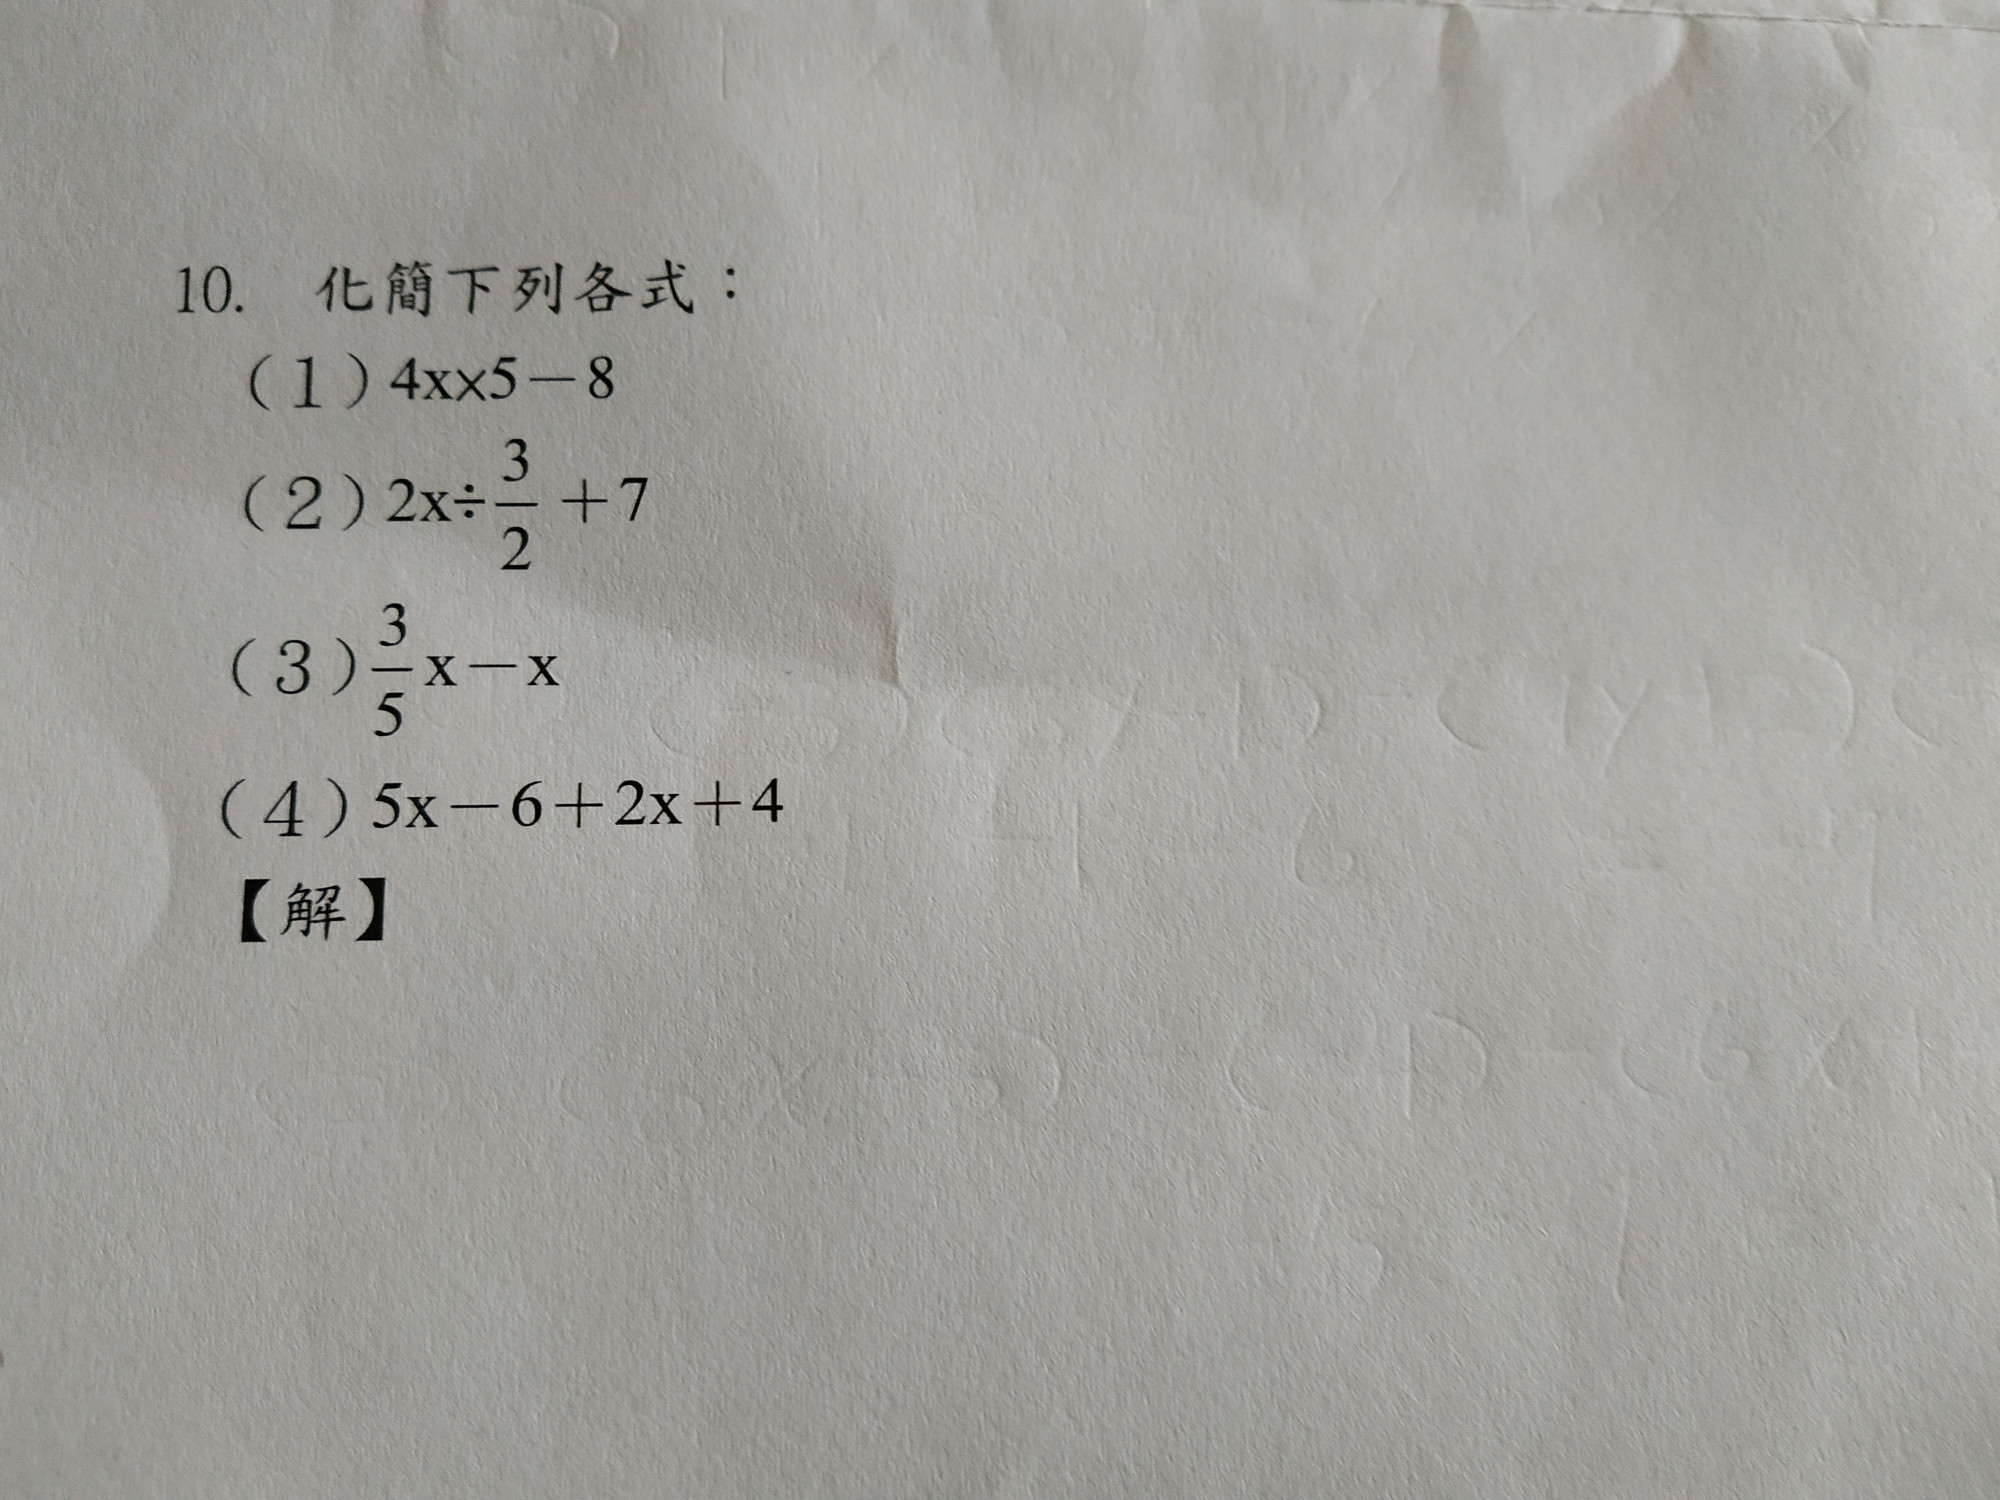 10. 化簡下列各式：
（1）4x×5－8
（2）2x÷3/2＋7
（3）3/5x－x
（4）5x－6＋2x＋4
【解】